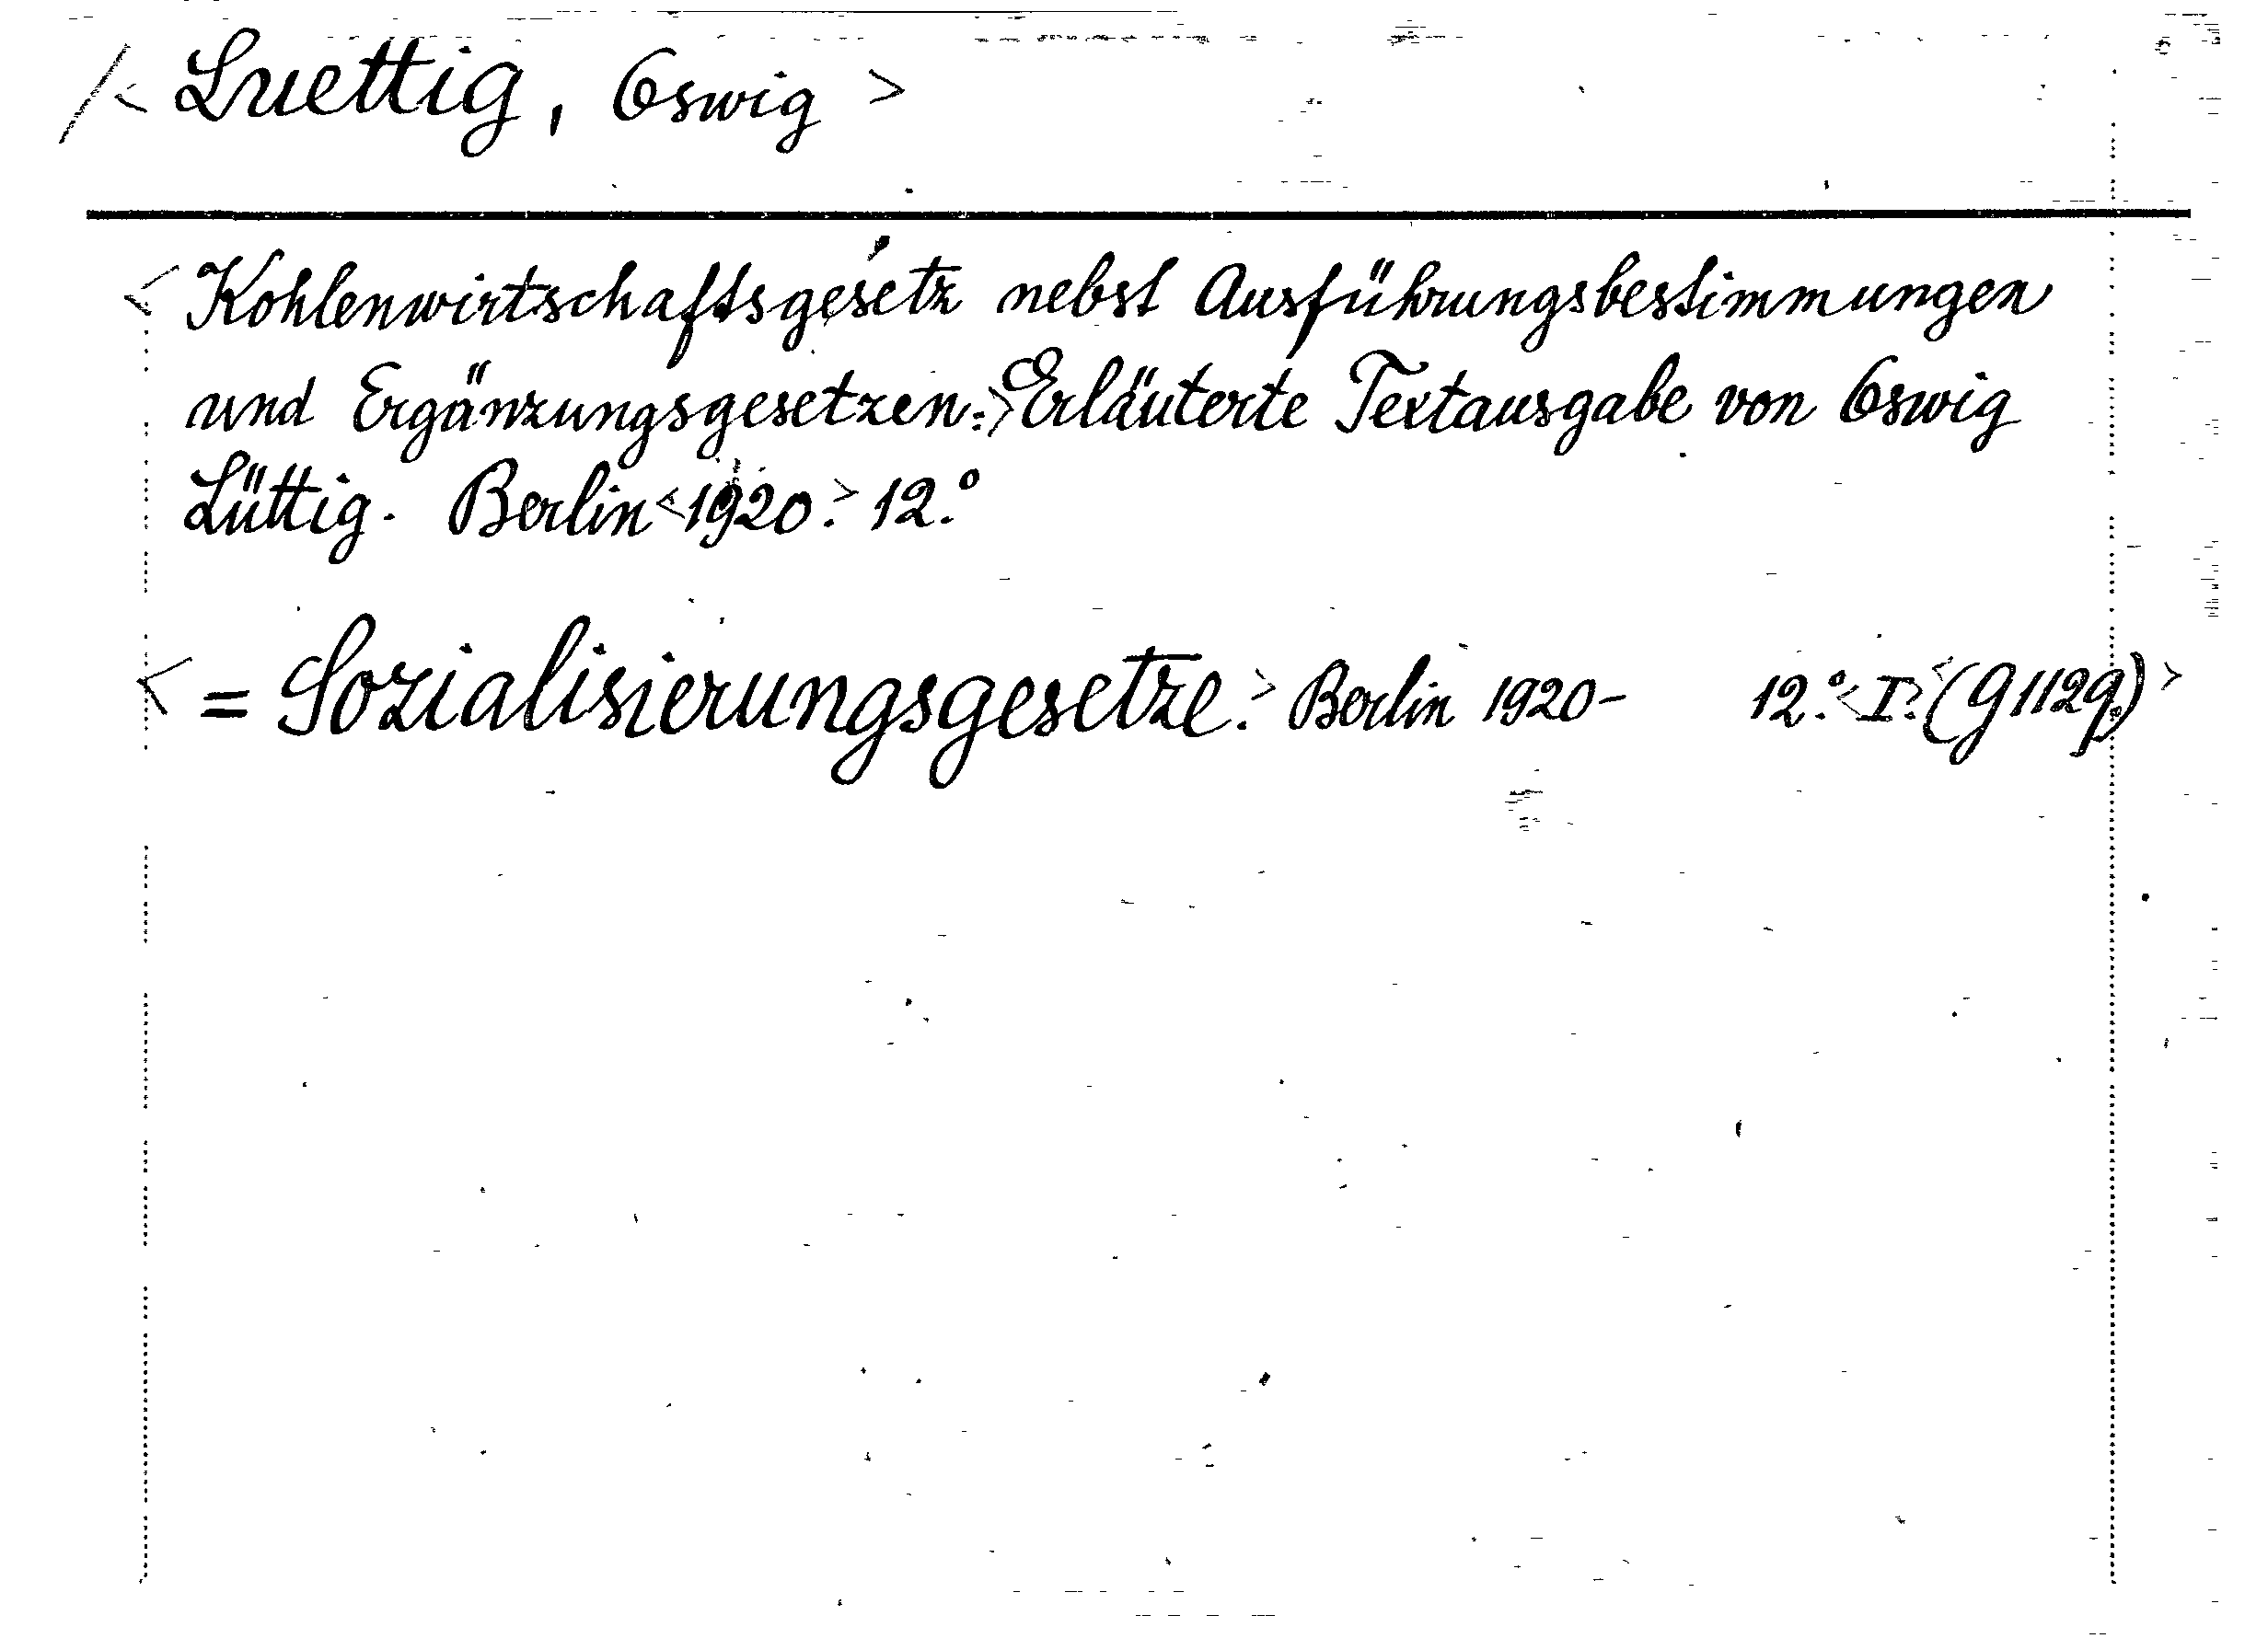 /< Luettig, Oswig >
< Kohlenwirtschaftsgesetz nebst Ausführungsbestimmungen
und Ergänzungsgesetzen.> Erläuterte Textausgabe von Oswig
Lüttig. Berlin <1920.> 12.°
< = Sozialisierungsgesetze.> Berlin 1920- 12.° <I.> <(G 1129.)>